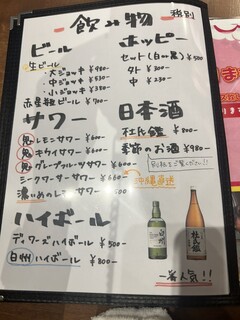 飲み物 税別
ビール
生ビール
・大ジョッキ ¥980-
・中ジョッキ ¥530-
・小ジョッキ ¥380-
赤星瓶ビール ¥700-
サワー
鬼レモンサワー ¥600-
鬼キウイサワー ¥600-
鬼グレープフルーツサワー ¥600-
シークワーサーサワー ¥600-
沖縄直送
濃いめのレモンサワー 500
ハイボール
デュワーズハイボール ¥500-
白州ハイボール ¥800-
ホッピー
セット(白or黒) ¥500
外 ¥300-
中 ¥230-
日本酒
杜氏鑑 ¥800-
季節のお酒 ¥980-
別紙をご覧ください!!
白州
杜氏鑑
一番人気!!